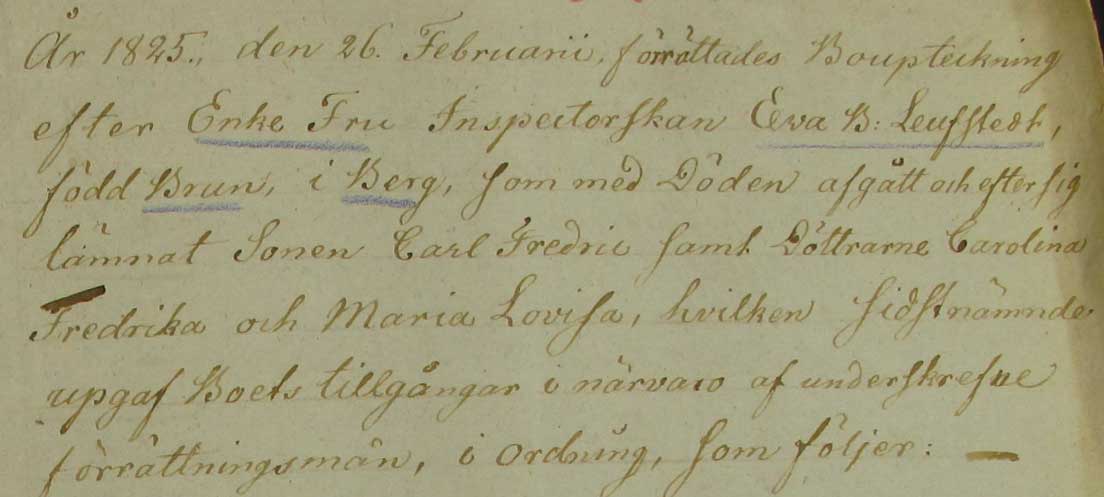 År 1825., den 26. Februarii, förrättades Boupteckning
efter Enke Fru Inspectorskan Eeva B: Leufstedt,
född Brun, i Berg, som med Döden afgått och efter sig
lämnat Sonen Carl Fredric samt Döttrarne Carolina
Fredrika och Maria Lovisa, hvilken sidstnämnde
upgaf Boets tillgångar i närvaro af underskrefne
förrättningsmän, i ordning, som följer: —